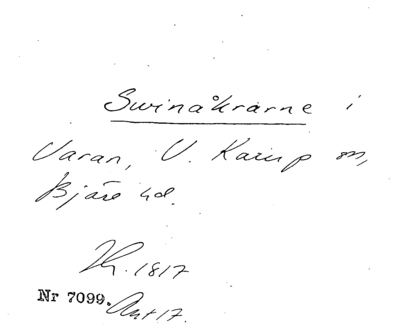 Svinåkrarne i
Varan, V. Karup sn,
Bjäre hd.
Th. 1817
Nr 7099. Akt 17.